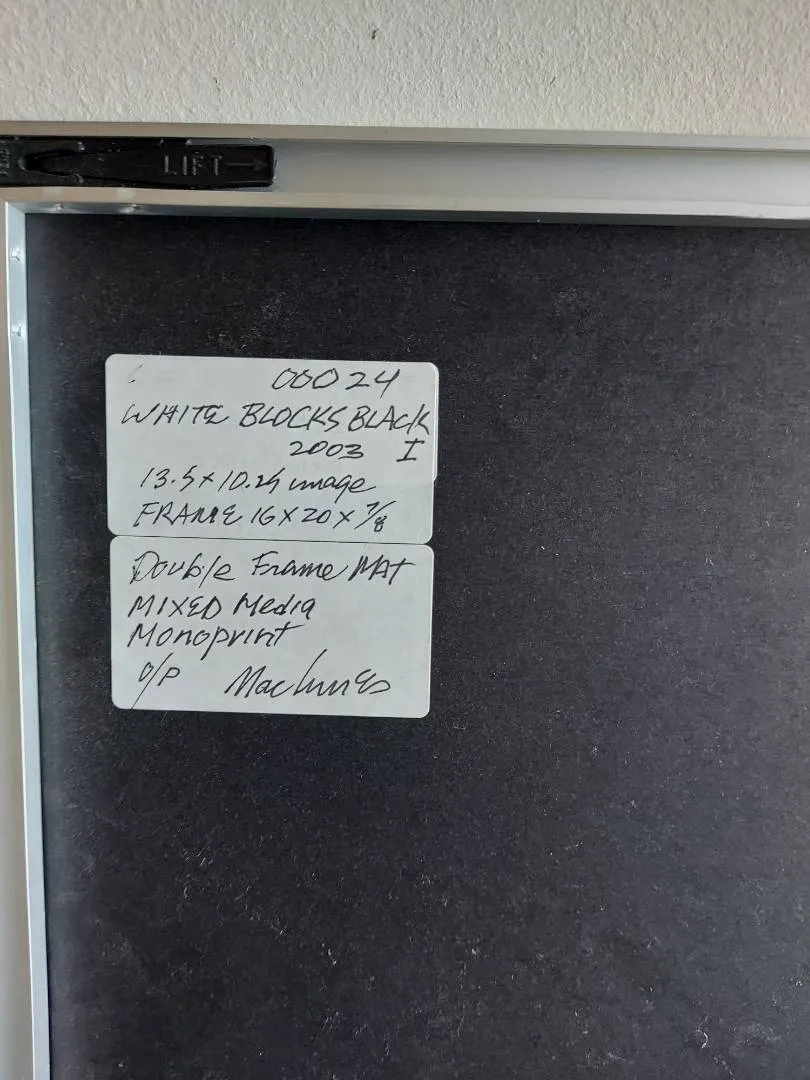 LIFT →
00024
WHITE BLOCKS BLACK
2003 I
13.5 x 10.25 image
FRAME 16 X 20 X 7/8
Double Frame MAT
MIXED Media
Monoprint
O/P